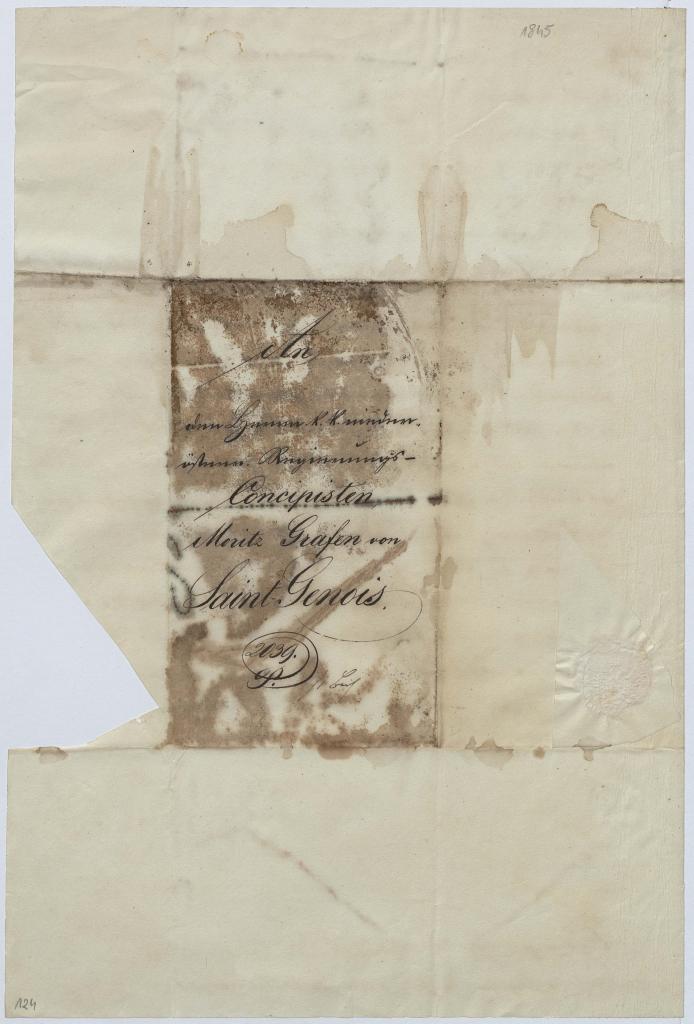 1845
An
den Herrn k. k. nieder-
österr. Regierungs-
Concipisten
Moritz Grafen von
Saint-Genois.
2039.
P.
124